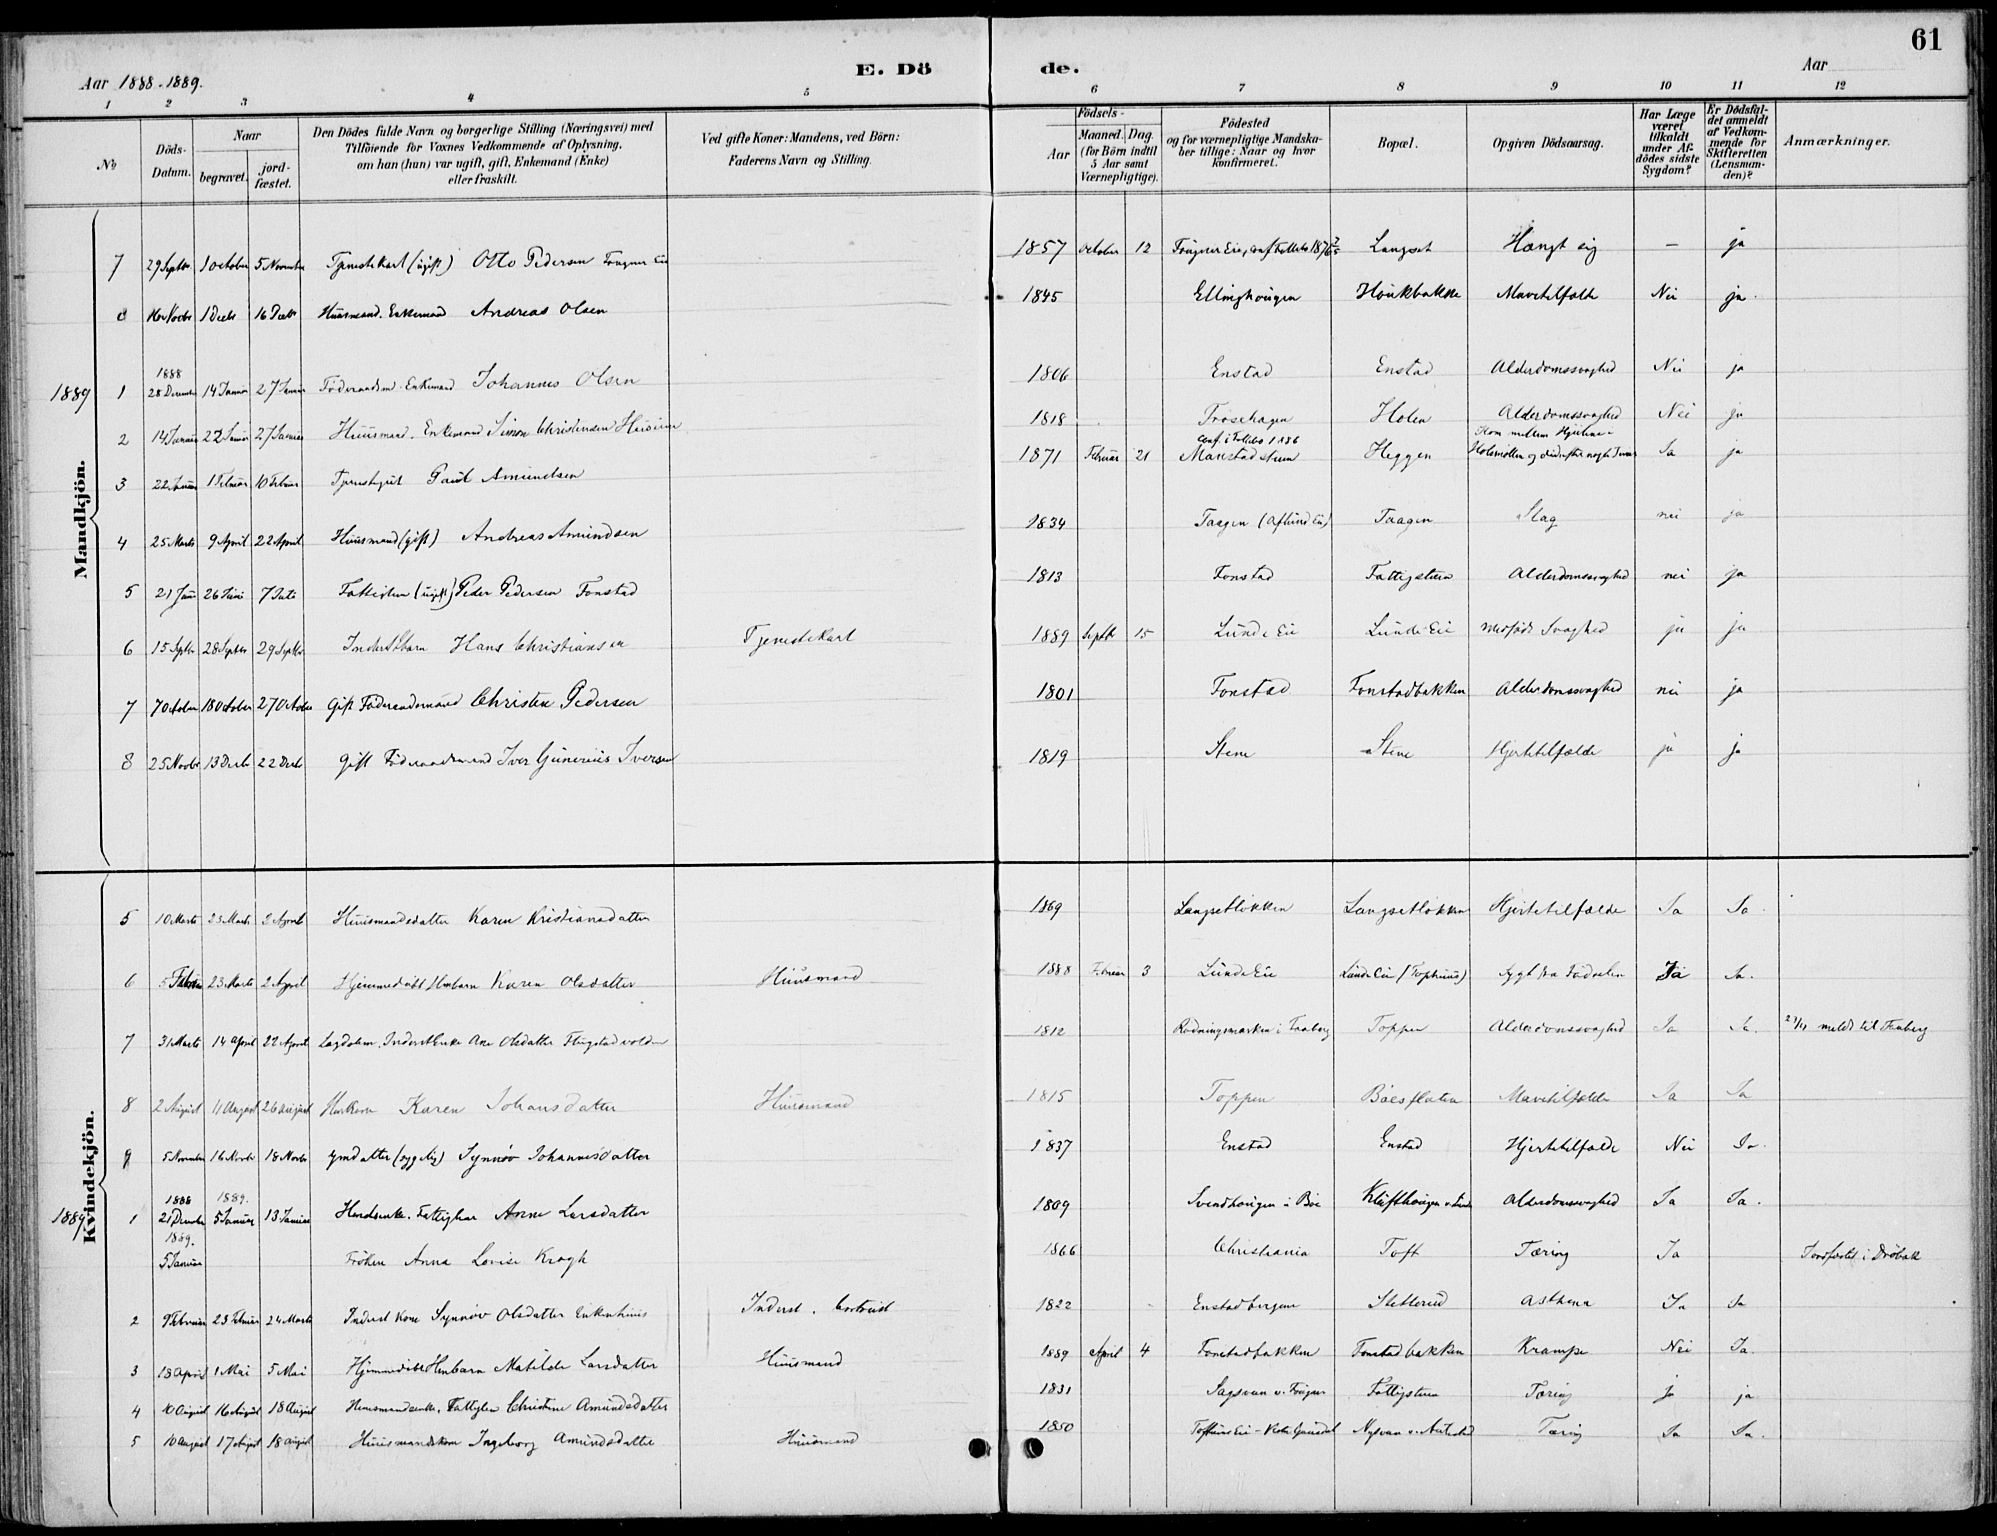 61
Aar 1888-1889.
E. Dö de.
Aar
1 2 3 4 5 6 7 8 9 10 11 12
№
Döds-Datum.
Naar
begravet.
jordfæstet.
Den Dödes fulde Navn og borgerlige Stilling (Næringsvei) med
Tilföiende for Voxnes Vedkommende af Oplysning,
om han (hun) var ugift, gift, Enkemand (Enke)
eller fraskilt.
Ved gifte Koner: Mandens, ved Börn:
Faderens Navn og Stilling.
Födsels-
Aar
Maaned. Dag.
(for Börn indtil
5 Aar samt
Værnepligtige).
Födested
og for værnepligtige Mandskaber tillige: Naar og hvor
konfirmeret.
Bopæl.
Opgiven Dödsaarsag.
Har Læge
været
tilkaldt
under Afdödes sidste
Sygdom?
Er Dödsfaldet anmeldt
af Vedkommende for
Skifteretten
(Lensmanden)?
Anmærkninger.
Mandkjön.
7 29 Septbr 1 October 5 November Tjenestekarl (ugift) Otto Pedersen Fougner Eie 1857 October 12 Fougner Eie, Langset Hængt sig — ja
8 1 Decbr 16 Decbr Huusmand. Enkemand Andreas Olsen 1845 Ellinghougen Houkbakke Mavetilfælde Nei ja.
1889
1 1888 28 December 14 Januar 27 Januar Föderaadsm. Enkemand Johannes Olsen 1806 Enstad Enstad Alderdomssvaghed Nei ja
2 14 Januar 22 Januar 27 Januar Huusmand. Enkemand Simon Christensen 1818 Holen Alderdomssvaghed Nei ja
3 22 Januar 1 Februar 10 Februar Tjenestegut Paul Amundsen 1871 Februar 21 Heggen Kom mellem Hjulene i Ja ja
4 25 Marts 9 April 22 April Huusmand (gift) Andreas Amundsen 1834 Taagen Taagen Slag nei ja
5 21 Juni 26 Juni 7 Juli Fattiglem (ugift) Peder Pedersen Fonstad 1813 Fonstad Fattigstuen Alderdomssvaghed nei ja
6 15 Septbr 28 Septbr 29 Septbr Inderst Barn Hans Christiansen Tjenestekarl 1889 Septbr 15 Lunde Eie Lunde Eie Medfödt Svaghed ja ja
7 7 October 18 October 27 October Gift Föderaadsmand Christen Pedersen 1801 Fonstad Fonstadbakken Alderdomssvaghed nei ja
8 25 Novbr 13 Decbr 22 Decbr Gift Föderaadsmand Iver Gunerius Iversen 1819 Stene Stene Hjertetilfælde ja ja
Kvindekjön.
5 10 Marts 23 Marts 2 April Huusmandsdatter Karen Kristiansdatter 1869 Langsetløkken Langsetløkken Hjertetilfælde Ja Ja.
6 5 Februar 23 Marts 2 April Hjemmedöbt Karen Olsdatter Huusmand 1888 Februar 3 Lunde Eie Lunde Eie (Tophuus) Sygt fra Födselen Ja Ja.
7 31 Marts 14 April 22 April Lægdslem, Inderst Enke Ane Olsdatter 1812 Rødningsmarken i Faaberg Toppen Alderdomssvaghed Ja Ja. meldt til Faaberg
8 2 August 11 August 26 August Karen Johansdatter Huusmand 1815 Toppen Mavetilfælde Ja Ja
9 5 November 16 Novbr 18 Novbr Synnøv Johannesdatter 1837 Enstad Enstad Hjertetilfælde Nei Ja.
1889
1 1888 21 December 1889. 5 Januar 13 Januar Fattiglem Anne Larsdatter 1809 Svendhougen i Böe Alderdomssvaghed Ja Ja.
1889. 5 Januar Fröken Anna Lovise Kragh 1866 Christiania Toft Tæring Ja Jordfæstet i Dröbak
2 9 Februar 23 Februar 24 Marts Inderst Kone Synnøv Olsdatter Inderst. 1822 Enstadbergene Sletterud Asthenn Ja Ja
3 18 April 1 Mai 5 Mai Hjemmedöbt Matilde Larsdatter Huusmand 1889 April 4 Fonstadbakken Fonstadbakken Krampe Nei Ja.
4 10 August 16 August 18 August Huusmandsenke, Fattiglem Christine Amundsdatter 1831 Fattigstuen Tæring ja ja
5 10 August 17 August 18 August Huusmandskone Ingeborg Amundsdatter Huusmand 1850 Tæring Ja Ja.